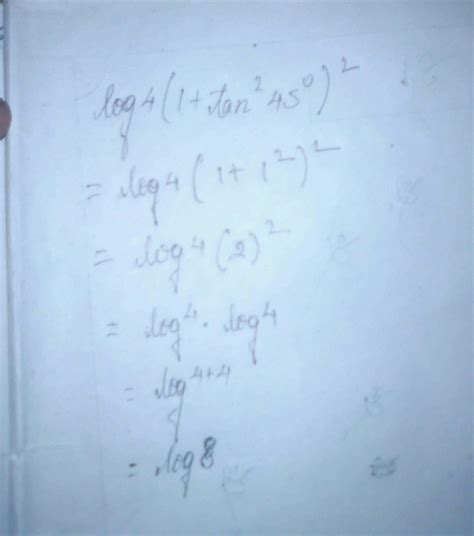 log 4 (1 + tan² 45⁰)²
= log 4 (1 + 1²)²
= log 4 (2)²
= log⁴ · log 4
= log⁴⁺⁴
= log 8